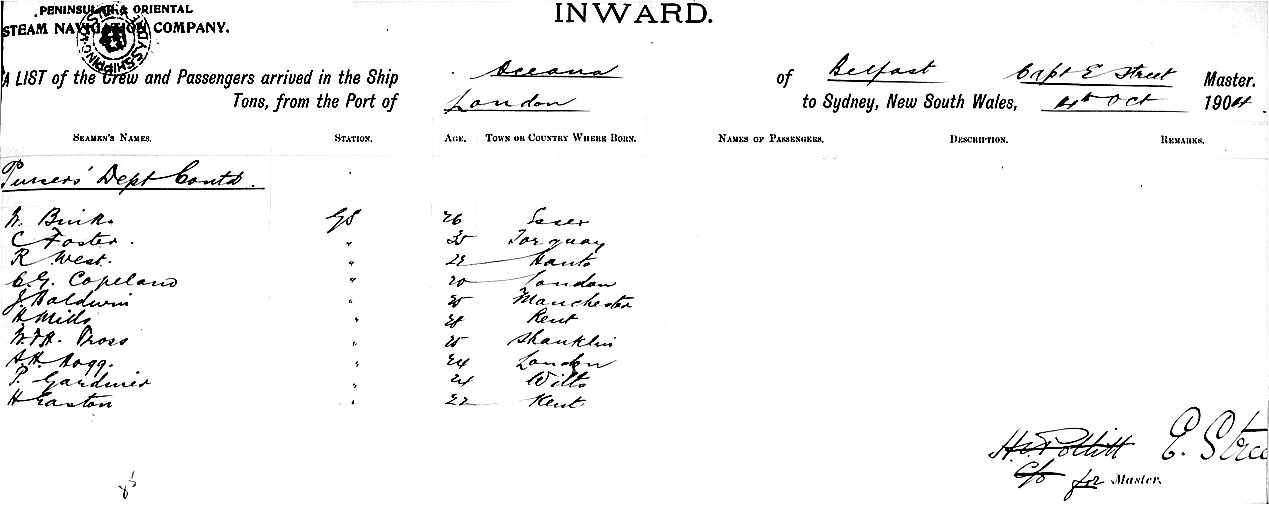 PENINSULAR & ORIENTAL
STEAM NAVIGATION COMPANY.
INWARD.
A LIST of the Crew and Passengers arrived in the Ship Oceana of Belfast Capt E Street Master.
Tons, from the Port of London to Sydney, New South Wales, Oct 1904
SEAMEN'S NAMES. STATION. AGE. TOWN OR COUNTRY WHERE BORN. NAMES OF PASSENGERS. DESCRIPTION. REMARKS.
Pursers' Dept Contd.
W. GS 26 Essex
C Foster. " Torquay
R West. " Hants
E.G. Copeland " 20 London
J. Baldwin " Manchester
H Mills " Kent
" Shanklin
A.H. Hogg. " 24 London
P. Gardiner " 24 Wilts
H Easton " 22 Kent
H. Pollitt E. Stree
for Master.